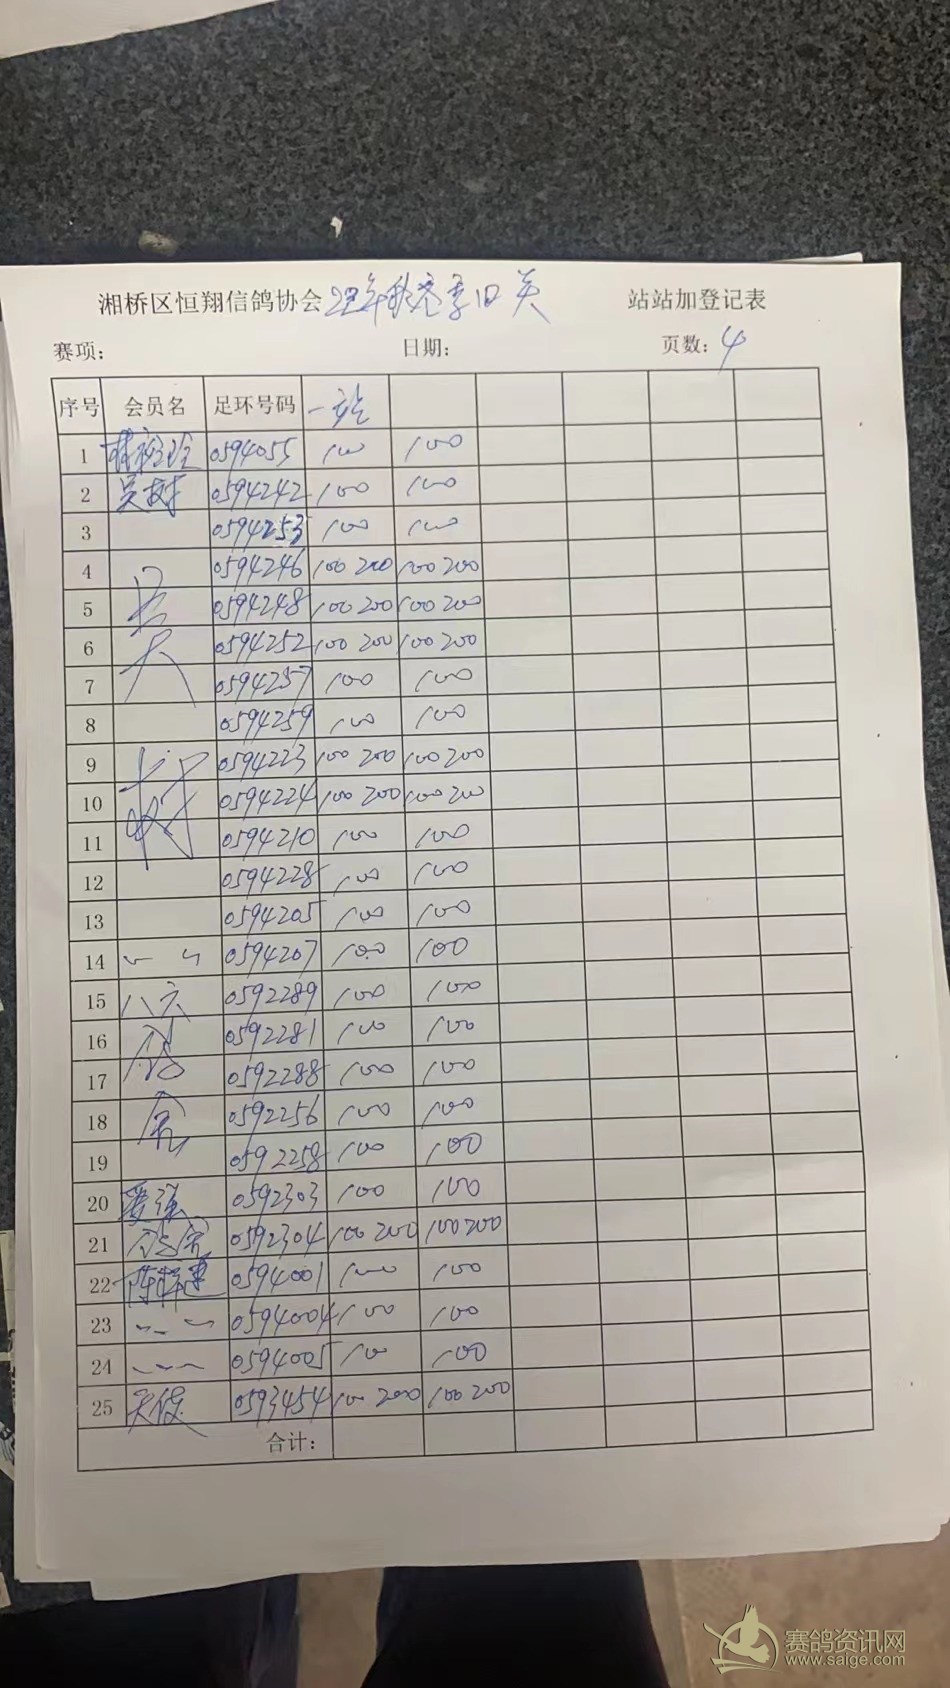 湘桥区恒翔信鸽协会 22年秋冬季四关 站站加登记表
赛项： 日期： 页数：4
序号 会员名 足环号码 一站
1 0594055 100 100
2 吴树 0594242 100 100
3 0594253 100 100
4 0594246 100 200 100 200
5 0594248 100 200 100 200
6 吴 0594252 100 200 100 200
7 0594257 100 100
8 0594259 100 100
9 0594223 100 200 100 200
10 树 0594224 100 200 100 200
11 0594210 100 100
12 0594228 100 100
13 0594205 100 100
14 0594207 100 100
15 八六 0592289 100 100
16 鸽 0592281 100 100
17 0592288 100 100
18 舍 0592256 100 100
19 0592258 100 100
20 0592303 100 100
21 鸽舍 0592304 100 200 100 200
22 0594001 100 100
23 0594004 100 100
24 0594005 100 100
25 天使 0593454 100 200 100 200
合计：
赛鸽资讯网
www.saige.com